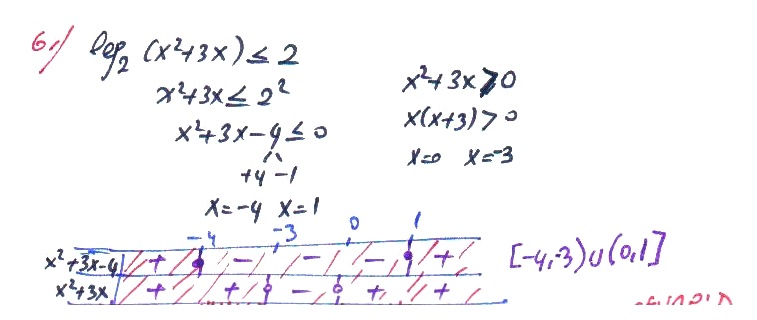 6.)
log₂ (x²+3x) ≤ 2
x²+3x ≤ 2²
x²+3x-4 ≤ 0
+4 -1
x=-4 x=1
x²+3x>0
x(x+3)>0
x=0 x=-3
-4 -3 0 1
x²+3x-4 + - - - +
x²+3x + + - + +
[-4,-3)∪(0,1]